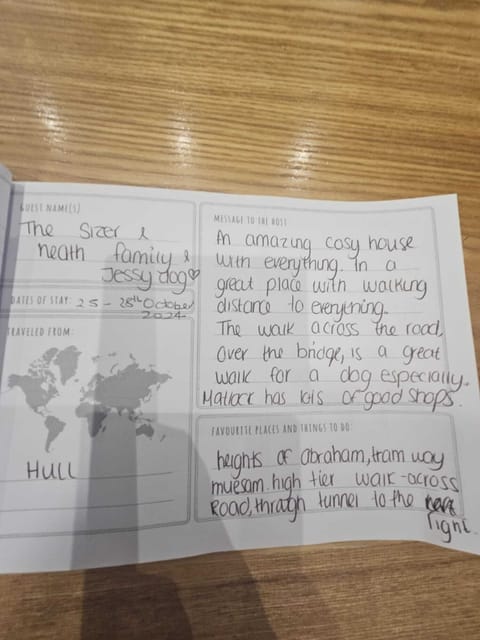 GUEST NAME(S)
The Sizer &
neath family &
Jessy dog♡
DATES OF STAY: 25 - 28th October
2024
TRAVELED FROM:
HULL
MESSAGE TO THE HOST
An amazing cosy house
with everything. In a
great place with walking
distance to everything.
The walk across the road,
over the bridge, is a great
walk for a dog especially.
Matlock has lots of good shops.
FAVOURITE PLACES AND THINGS TO DO:
heights of abraham, tram way
muesam. high tier walk-across
Road, through tunnel to the
right.